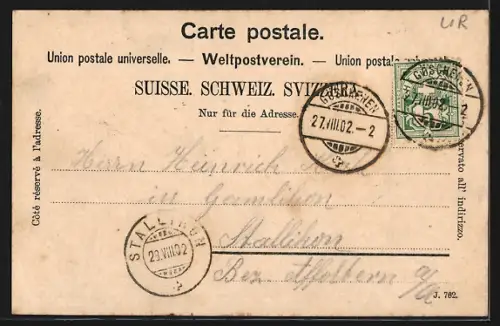 UR
Carte postale.
Union postale universelle. — Weltpostverein. — Union postale
SUISSE. SCHWEIZ. SVIZZERA.
Nur für die Adresse.
GÖSCHENEN
27.VIII.02.–2
GÖSCHENEN
VIII.02
2
Côté réservé à l'adresse.
riservato all' indirizzo.
Herrn Heinrich
in Gamlikon
Stallikon
Bez. Affoltern a/A
STALLIKON
29.VIII.02
J. 762.